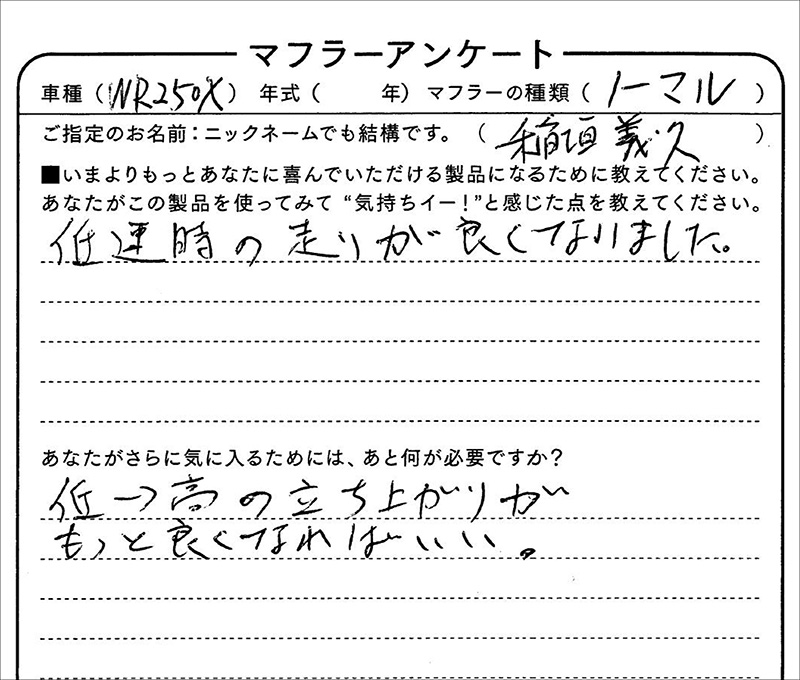 マフラーアンケート
車種（WR250X）年式（　　年）マフラーの種類（ノーマル）
ご指定のお名前：ニックネームでも結構です。（稲垣義久）
■いまよりもっとあなたに喜んでいただける製品になるために教えてください。
あなたがこの製品を使ってみて“気持ちイー！”と感じた点を教えてください。
低速時の走りが良くなりました。
あなたがさらに気に入るためには、あと何が必要ですか？
低→高の立ち上がりが
もっと良くなればいい。